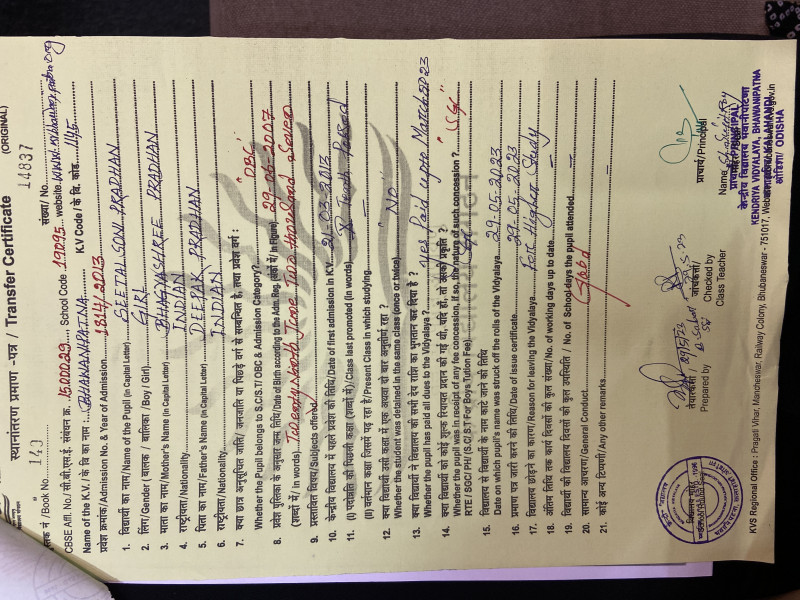 स्थानांतरण प्रमाण -पत्र / Transfer Certificate
(ORIGINAL)
/Book No. 149 संख्या/ No. 14837
CBSE Affl. No./ सी.बी.एस.ई. संबधन क्र. 1500029 School Code 19095 website
Name of the K.V. / के वि का नाम : BHAWANIPATNA K.V Code / के वि. कोड 1145
प्रवेश क्रमांक/Admission No. & Year of Admission 1814/2013
1. विद्यार्थी का नाम/Name of the Pupil (in Capital Letter) SEETAL SONI PRADHAN
2. लिंग/Gender (बालक / बालिका / Boy / Girl) GIRL
3. माता का नाम/Mother's Name (in Capital Letter) BHAGYASHREE PRADHAN
4. राष्ट्रीयता/Nationality INDIAN
5. पिता का नाम/Father's Name (in Capital Letter) DEEPAK PRADHAN
6. राष्ट्रीयता/Nationality INDIAN
7. क्या छात्र अनुसूचित जाति/ जनजाति या पिछड़े वर्ग से सम्बन्धित है, तथा प्रवेश वर्ग :
Whether the Pupil belongs to S.C/S.T/ OBC & Admission Category? "OBC"
8. प्रवेश पुस्तिका के अनुसार जन्म तिथि/Date of Birth according to the Adm. Reg. (अंकों में/ In Figure) 29-06-2007
(शब्दों में/ In words) Twenty Ninth June Two thousand Seven
9. प्रस्तावित विषय/Subjects offered
10. केन्द्रीय विद्यालय में पहले प्रवेश की तिथि/Date of first admission in K.V. 21-03-2013
11. (I) पदोन्नति की पिछली कक्षा (शब्दों में)/Class last promoted (in words) X Tenth Passed
(II) वर्तमान कक्षा जिसमें पढ़ रहा है/Present Class in which studying —
12. क्या विद्यार्थी उसी कक्षा में एक अथवा दो बार अनुत्तीर्ण रहा ?
Whether the student was detained in the same class (once or twice) "NO"
13. क्या विद्यार्थी ने विद्यालय की सभी देय राशि का भुगतान कर दिया है ?
Whether the pupil has paid all dues to the Vidyalaya ? Yes Paid upto March 2023
14. क्या विद्यार्थी को कोई शुल्क रियायत प्रदान की गई थी, यदि हाँ, तो उसकी प्रकृति ?
Whether the pupil was in receipt of any fee concession, If so, the nature of such concession ? "SGC"
RTE / SGC/ PH/ (S.C/ S.T For Boys Tution Fee)
15. विद्यालय से विद्यार्थी के नाम काटे जाने की तिथि
Date on which pupil's name was struck off the rolls of the Vidyalaya 29-05-2023
16. प्रमाण पत्र जारी करने की तिथि/Date of issue certificate 29-05-2023
17. विद्यालय छोड़ने का कारण/Reason for leaving the Vidyalaya For Higher Study
18. अंतिम तिथि तक कार्य दिवसों की कुल संख्या/No. of working days up to date —
19. विद्यार्थी की विद्यालय दिवसों की कुल उपस्थिति / No. of School days the pupil attended —
20. सामान्य आचरण/General Conduct Good
21. कोई अन्य टिप्पणी /Any other remarks —
29/5/23
Prepared by
जांचकर्ता/
Checked by
Class Teacher
प्राचार्य/Principal
Name
केन्द्रीय विद्यालय भवानीपाटणा
KENDRIYA VIDYALAYA, BHAWANIPATNA
ओडिशा/ ODISHA
KVS Regional Office : Pragati Vihar, Mancheswar, Railway Colony, Bhubaneswar - 751017,